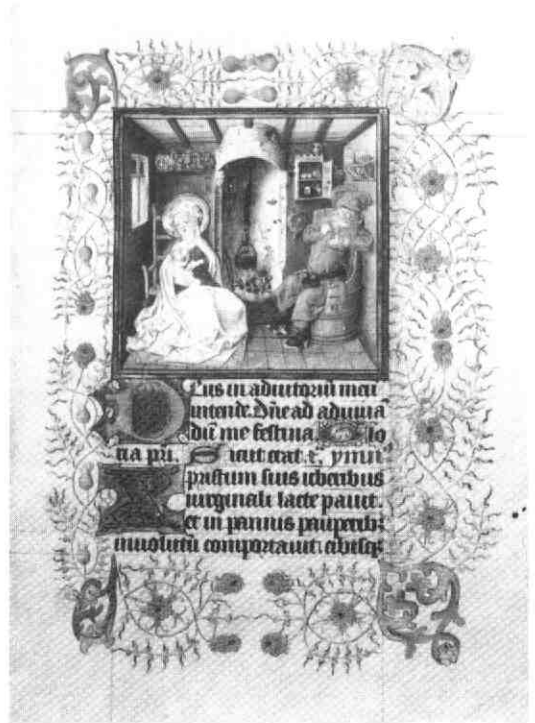 Deus in adiutoriū meū
intende. Dñe ad adiuuā
dū me festina. Glo
ria pri. Sicut erat. ⁊. ymn
Xpristum suis uberibus
uirginali lacte pauit.
et in pannis pauperibꝫ
inuolutū comportauit: cibisqꝫ